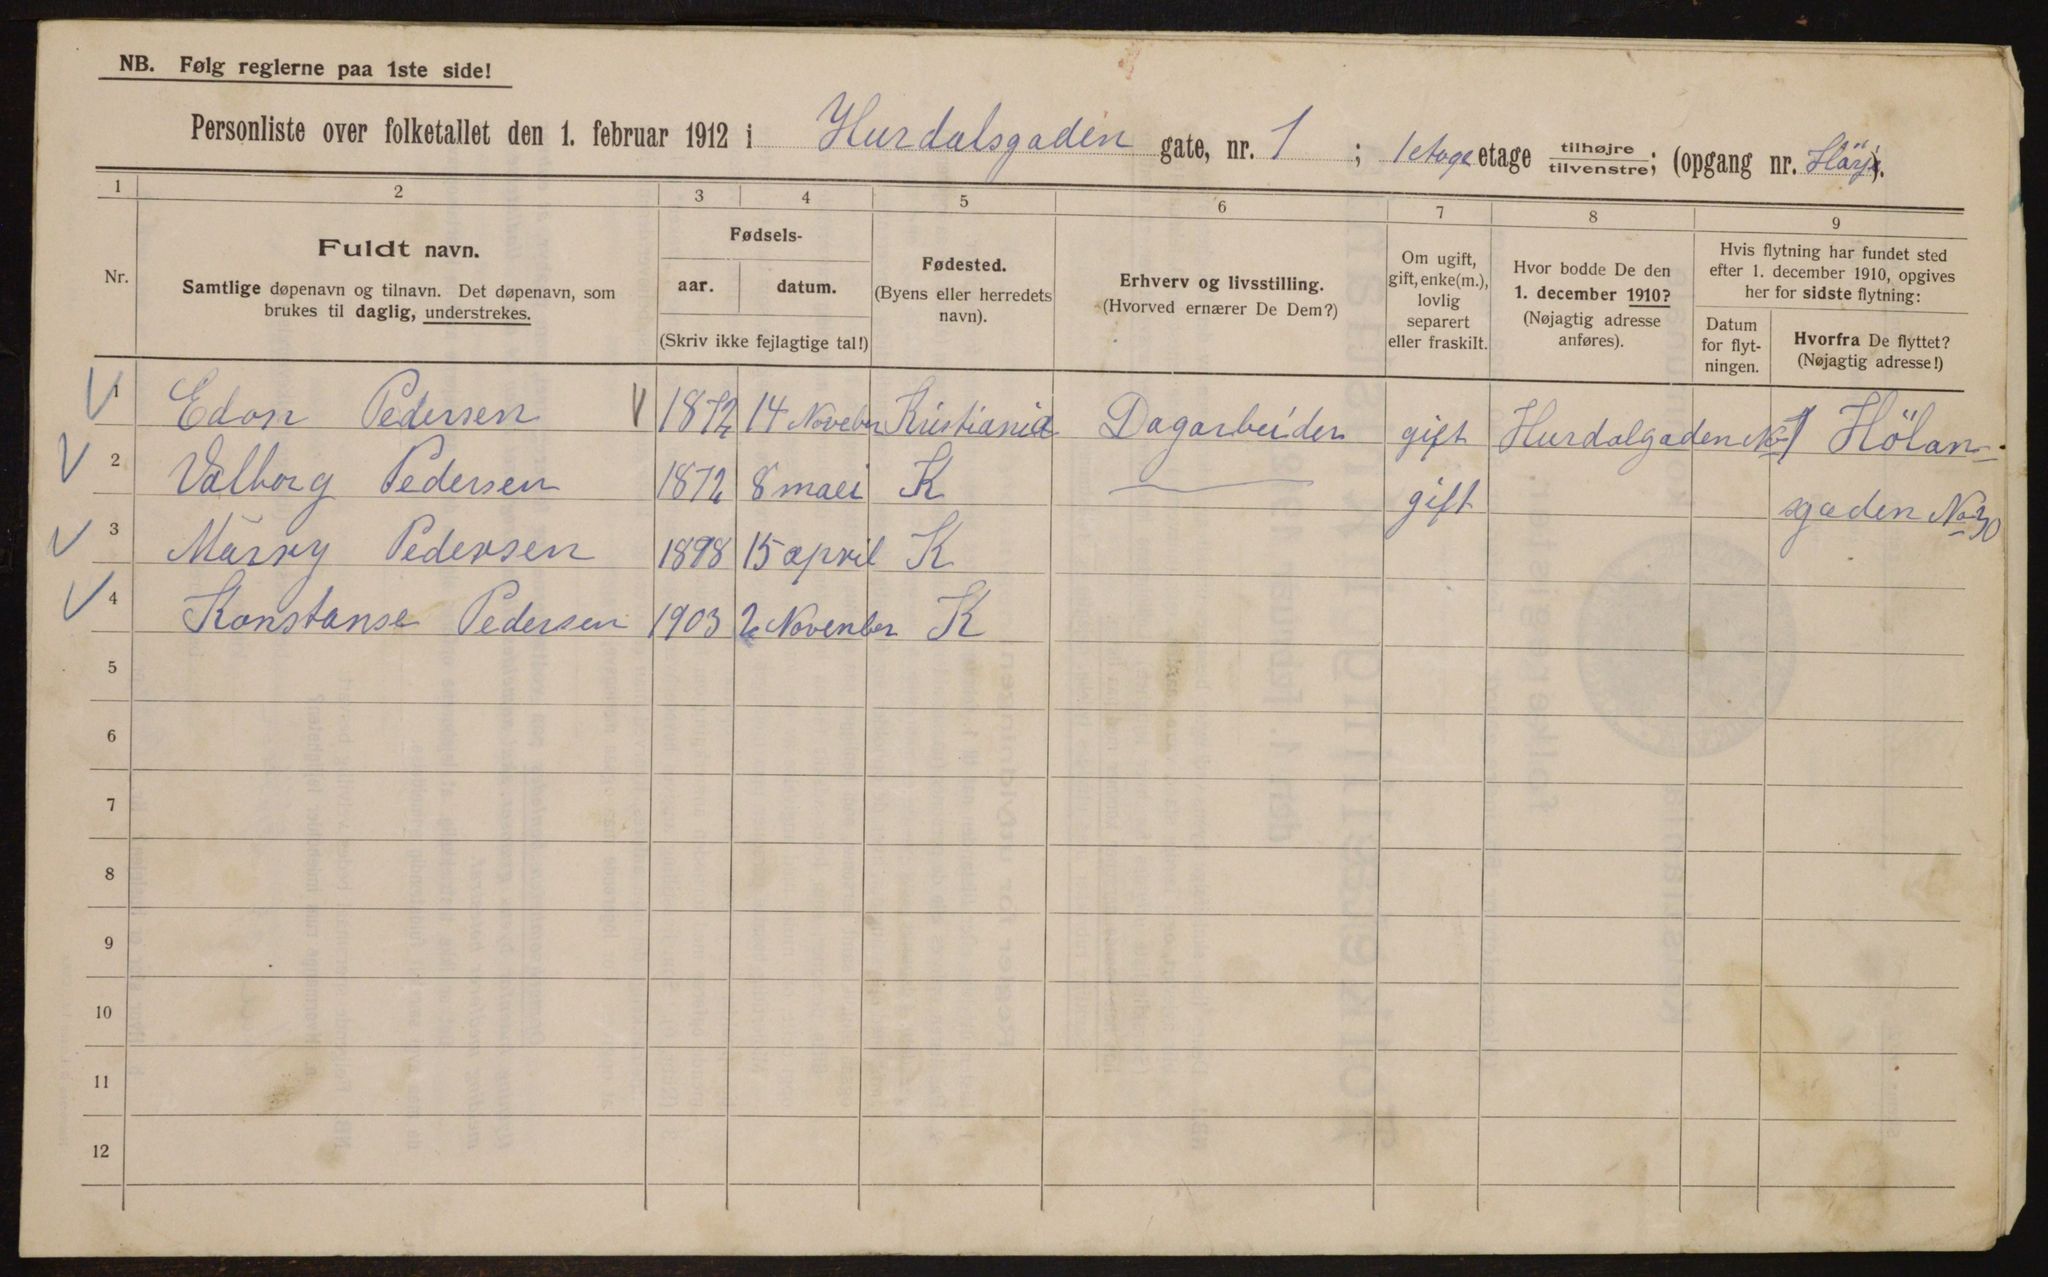 NB. Følg reglerne paa 1ste side!
Personliste over folketallet den 1. februar 1912 i Hurdalsgaden gate, nr. 1 ; 1 etage etage tilhøjre/tilvenstre; (opgang nr. ).
1 2 3 4 5 6 7 8 9
Nr.
Fuldt navn.
Samtlige døpenavn og tilnavn. Det døpenavn, som
brukes til daglig, understrekes.
Fødsels-
aar. datum.
(Skriv ikke fejlagtige tal!)
Fødested.
(Byens eller herredets
navn).
Erhverv og livsstilling.
(Hvorved ernærer De Dem?)
Om ugift,
gift, enke(m.),
lovlig
separert
eller fraskilt.
Hvor bodde De den
1. december 1910?
(Nøjagtig adresse
anføres).
Hvis flytning har fundet sted
efter 1. december 1910, opgives
her for sidste flytning:
Datum
for flyt-
ningen.
Hvorfra De flyttet?
(Nøjagtig adresse!)
1 Edon Pedersen 1872 14 Noveber Kristiania Dagarbeider gift Hurdalgaden No 1 Hölan-
2 Valborg Pedersen 1872 8 maei K — gift sgaden No 30
3 Märry Pedersen 1898 15 april K
4 Konstanse Pedersen 1903 2 Novenber K
5
6
7
8
9
10
11
12